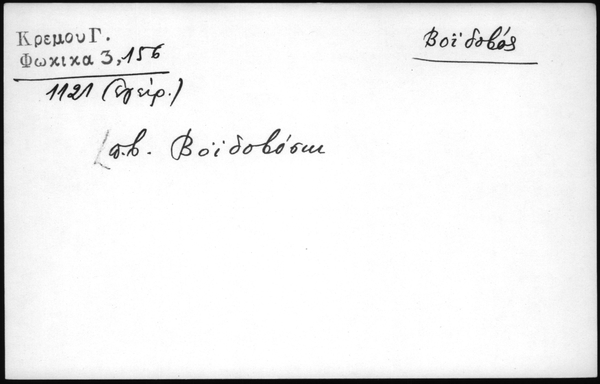 Κρεμου Γ.
Φωκικα 3, 156
1121 (ἐγείρ.)
Βοϊδοβός
π.β. Βοϊδοβόσκω